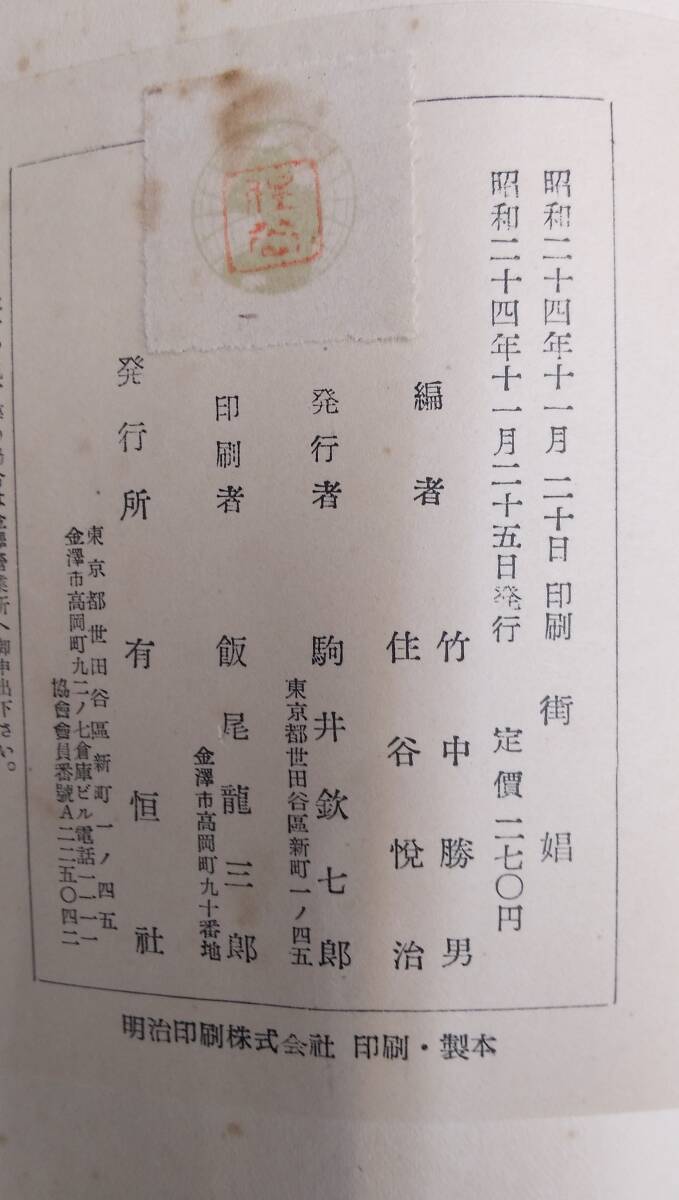 昭和二十四年十一月二十日印刷 街娼
昭和二十四年十一月二十五日発行 定價二七〇円
編者 竹中勝男
住谷悅治
発行者 駒井欽七郎
東京都世田谷區新町一ノ四五
印刷者 飯尾龍三郎
金澤市高岡町九十番地
発行所 有恒社
東京都世田谷區新町一ノ四五
金澤市高岡町九二ノ七倉庫ビル電話一一一一
協會會員番號A二二五〇四二
営業所へ御申出下さい。
明治印刷株式会社 印刷・製本